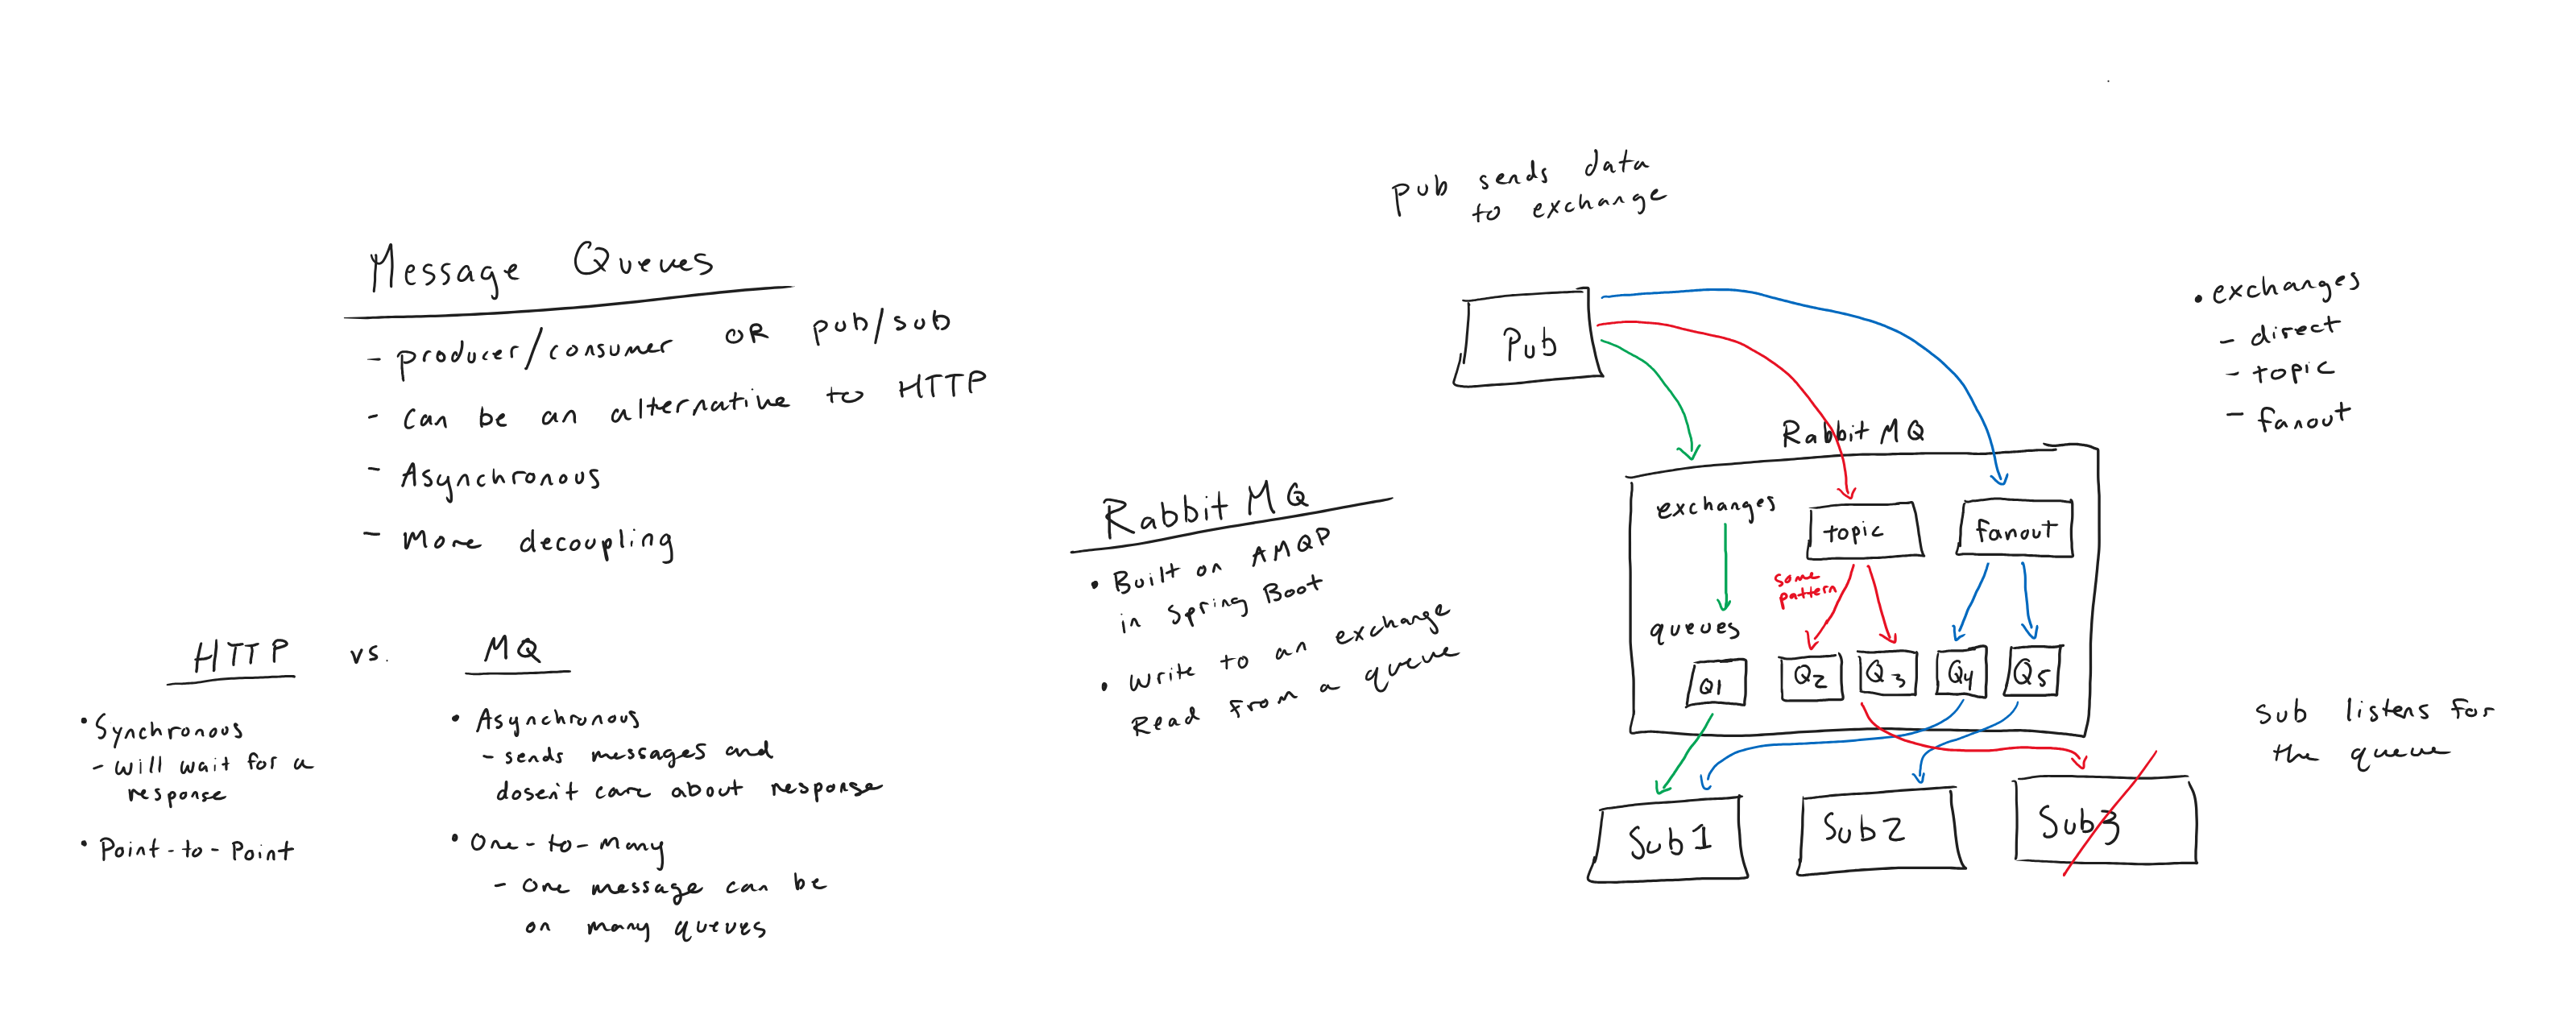 Message Queues
- producer/consumer OR pub/sub
- can be an alternative to HTTP
- Asynchronous
- More decoupling
HTTP vs. MQ
• Synchronous
- will wait for a
response
• Point-to-Point
• Asynchronous
- sends messages and
dosen't care about response
• One-to-many
- one message can be
on many queues
Rabbit MQ
• Built on AMQP
in Spring Boot
• Write to an exchange
Read from a queue
pub sends data
to exchange
Pub
Rabbit MQ
exchanges
topic
fanout
some
pattern
queues
Q1
Q2
Q3
Q4
Q5
Sub1
Sub2
Sub3
• exchanges
- direct
- topic
- fanout
Sub listens for
the queue